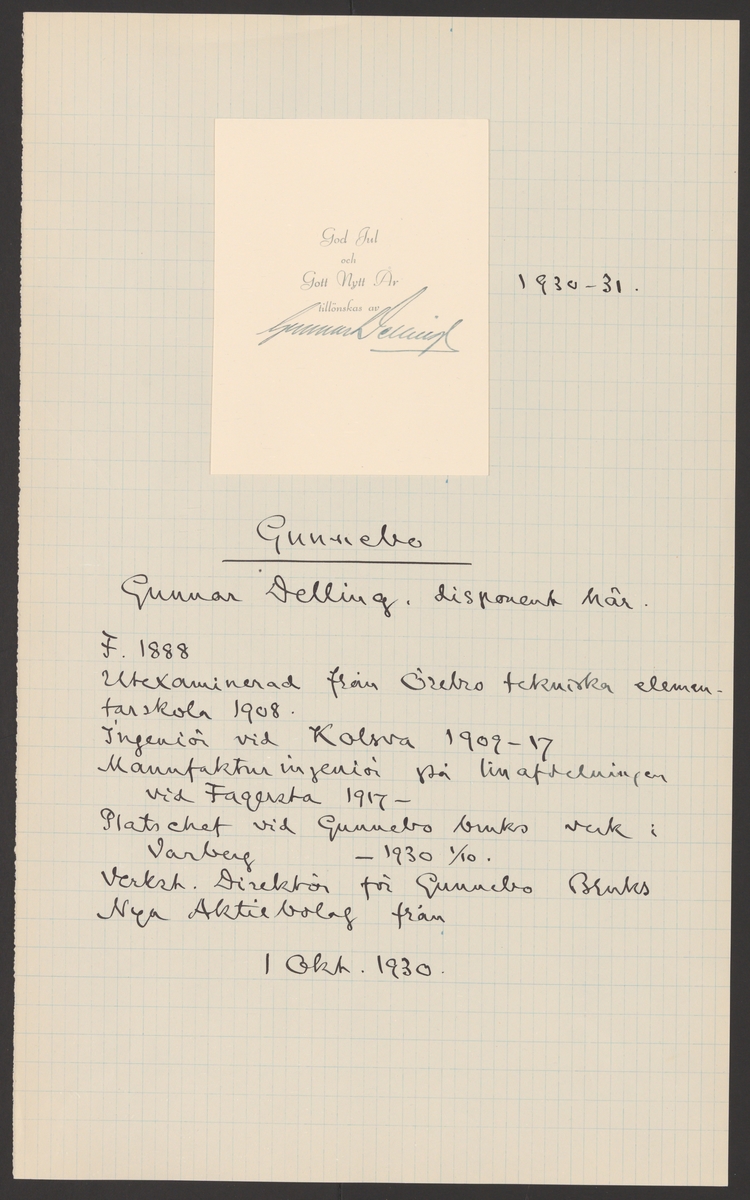 God Jul
och
Gott Nytt År
tillönskas av
Gunnar Delling
1930-31.
Gunnebo
Gunnar Delling, disponent här.
F. 1888
Utexaminerad från Örebro tekniska elemen-
tarskola 1908.
Ingeniör vid Kolsva 1909-17
Manufakturingeniör på linafdelningen
vid Fagersta 1917-
Platschef vid Gunnebo bruks verk i
Varberg - 1930 1/10.
Verkst. Direktör för Gunnebo Bruks
Nya Aktiebolag från
1 Okt. 1930.